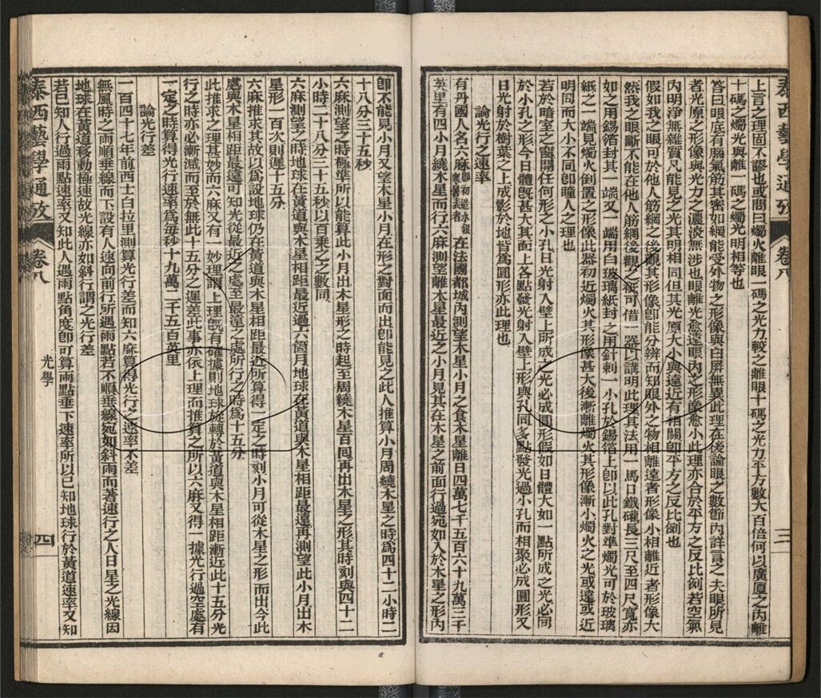 泰西藝學通攷
卷八
三
上言之理固不謬也或問曰燭火離眼一碼之光力較之離眼十碼之光力平方數大百倍何以廣厦之內離
十碼之燭光與離一碼之燭光明相等也
答曰眼底有腦氣筋其密如網能受外物之形像與白屏無異此理在後論眼之數節內詳言之夫眼所見
者光原之形像與光力之濃淡無涉也眼離光愈遠眼內之形像愈小此理亦合於平方之反比例若空氣
內明淨無雜質只能見之光其明相同但其光原大小與遠近有相關卽平方之反比例也
假如我之眼可於他人筋網之後觀其形像卽能分辨而知眼外之物相離遠者形像小相離近者形像大
然我之眼斷不能在他人筋網後觀之祇可借一器以講明此理其法用一馬口鐵礶長三尺至四尺寬亦
如之用錫箔封其一端又一端用白玻璃紙封之用針刺一小孔於錫箔上卽以此孔對準燭光可於玻璃
紙之一端見燭火倒置之形像此器初近燭火其形像甚大後漸離燭火其形像漸小燭火之光或遠或近
明同而大小不同卽瞳人之理也
若於暗室之窗開任何形之小孔日光射入壁上所成之光必成圓形假如日體大如一點所成之光必同
於小孔之形今日體旣甚大其面上各點發光射入壁上形與孔同多點發光過小孔而相聚必成圓形又
日光射於樹葉之上成影於地皆爲圓形亦此理也
論光行之速率
有丹國人名六麻 在法國都城內測望木星小月之食木星離日四萬七千五百六十九萬二千
英里有四小月繞木星而行六麻測望離木星最近之小月見其在木星之前面行過宛如入於木星之形內
卽不能見小月又望木星小月在形之對面而出卽能見之此人推算小月周繞木星之時爲四十二小時二
十八分三十五秒
六麻測望之時極準所以能算此小月出木星形之時起至周繞木星百囘再出木星之形其時刻與四十二
小時二十八分三十五秒以百乘之之數同
六麻測望之時地球在黃道與木星相距最近過六箇月地球在黃道與木星相距最遠再測望此小月出木
星形一百次則遲十五分
六麻推求其故以爲設地球仍在黃道與木星相距最近所算得一定之時刻小月可從木星之形而出今此
處與木星相距最遠可知光從最近之處至最遠之處所行之時爲十五分
此推求之理甚妙而六麻又有一妙理謂上理旣有確據則地球旋轉於黃道與木星相距漸近此十五分光
行之時亦必漸減而至於無此十五分之遲差此事亦依上理而推算之所以六麻又得一據光行過空處有
一定之時算得光行速率爲每秒十九萬二千五百英里
論光行差
一百四十七年前西士白拉里測算光行差而知六麻算得光行之速率不差
無風時之雨順垂線而下設有人速向前行所遇雨點若不順垂線宛如斜雨而著速行之人日星之光線因
地球在黃道移動極速故光線亦如斜行謂之光行差
若已知人行過雨點速率又知此人遇雨點角度卽可算雨點垂下速率所以已知地球行於黃道速率又知
泰西藝學通攷
卷八
光學
四